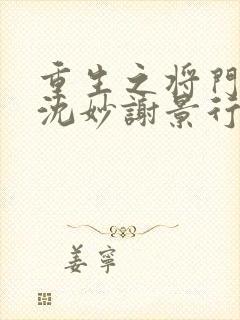 重生之将門
沈妙謝景行
姜寧